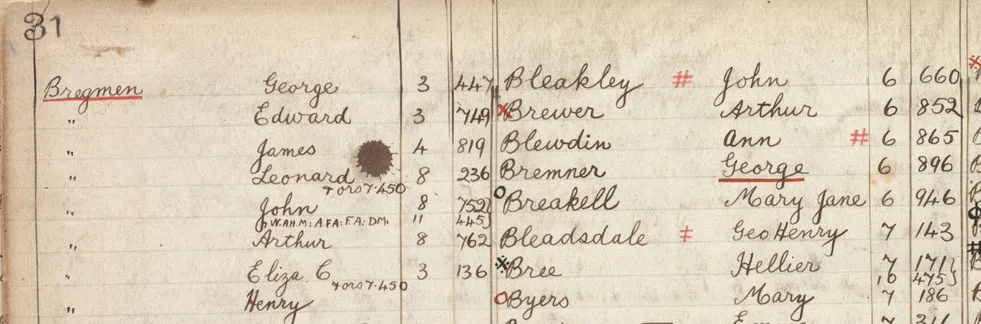 31
Bregmen George 3 447
" Edward 3 749
" James 4 819
" Leonard 8 236
+ ors 7.450
" John 8 752
W.AH.M: A.FA: F.A: DM. 11 445
" Arthur 8 762
Eliza C 3 136
+ ors 7.450
" Henry
Bleakley # John 6 660
x Brewer Arthur 6 852
Blewdin Ann # 6 865
Bremner George 6 896
o Breakell Mary Jane 6 946
Bleadsdale # Geo Henry 7 143
x Bree Hellier 7 171}
10 475}
o Byers Mary 7 186